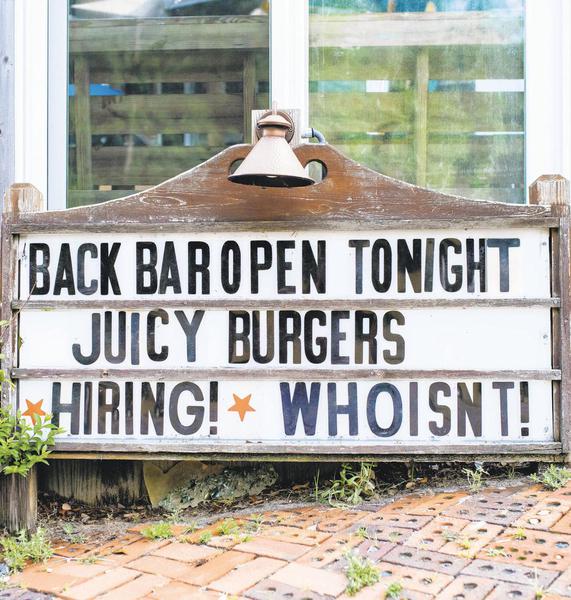 BACK BAR OPEN TONIGHT
JUICY BURGERS
HIRING! WHO ISNT!